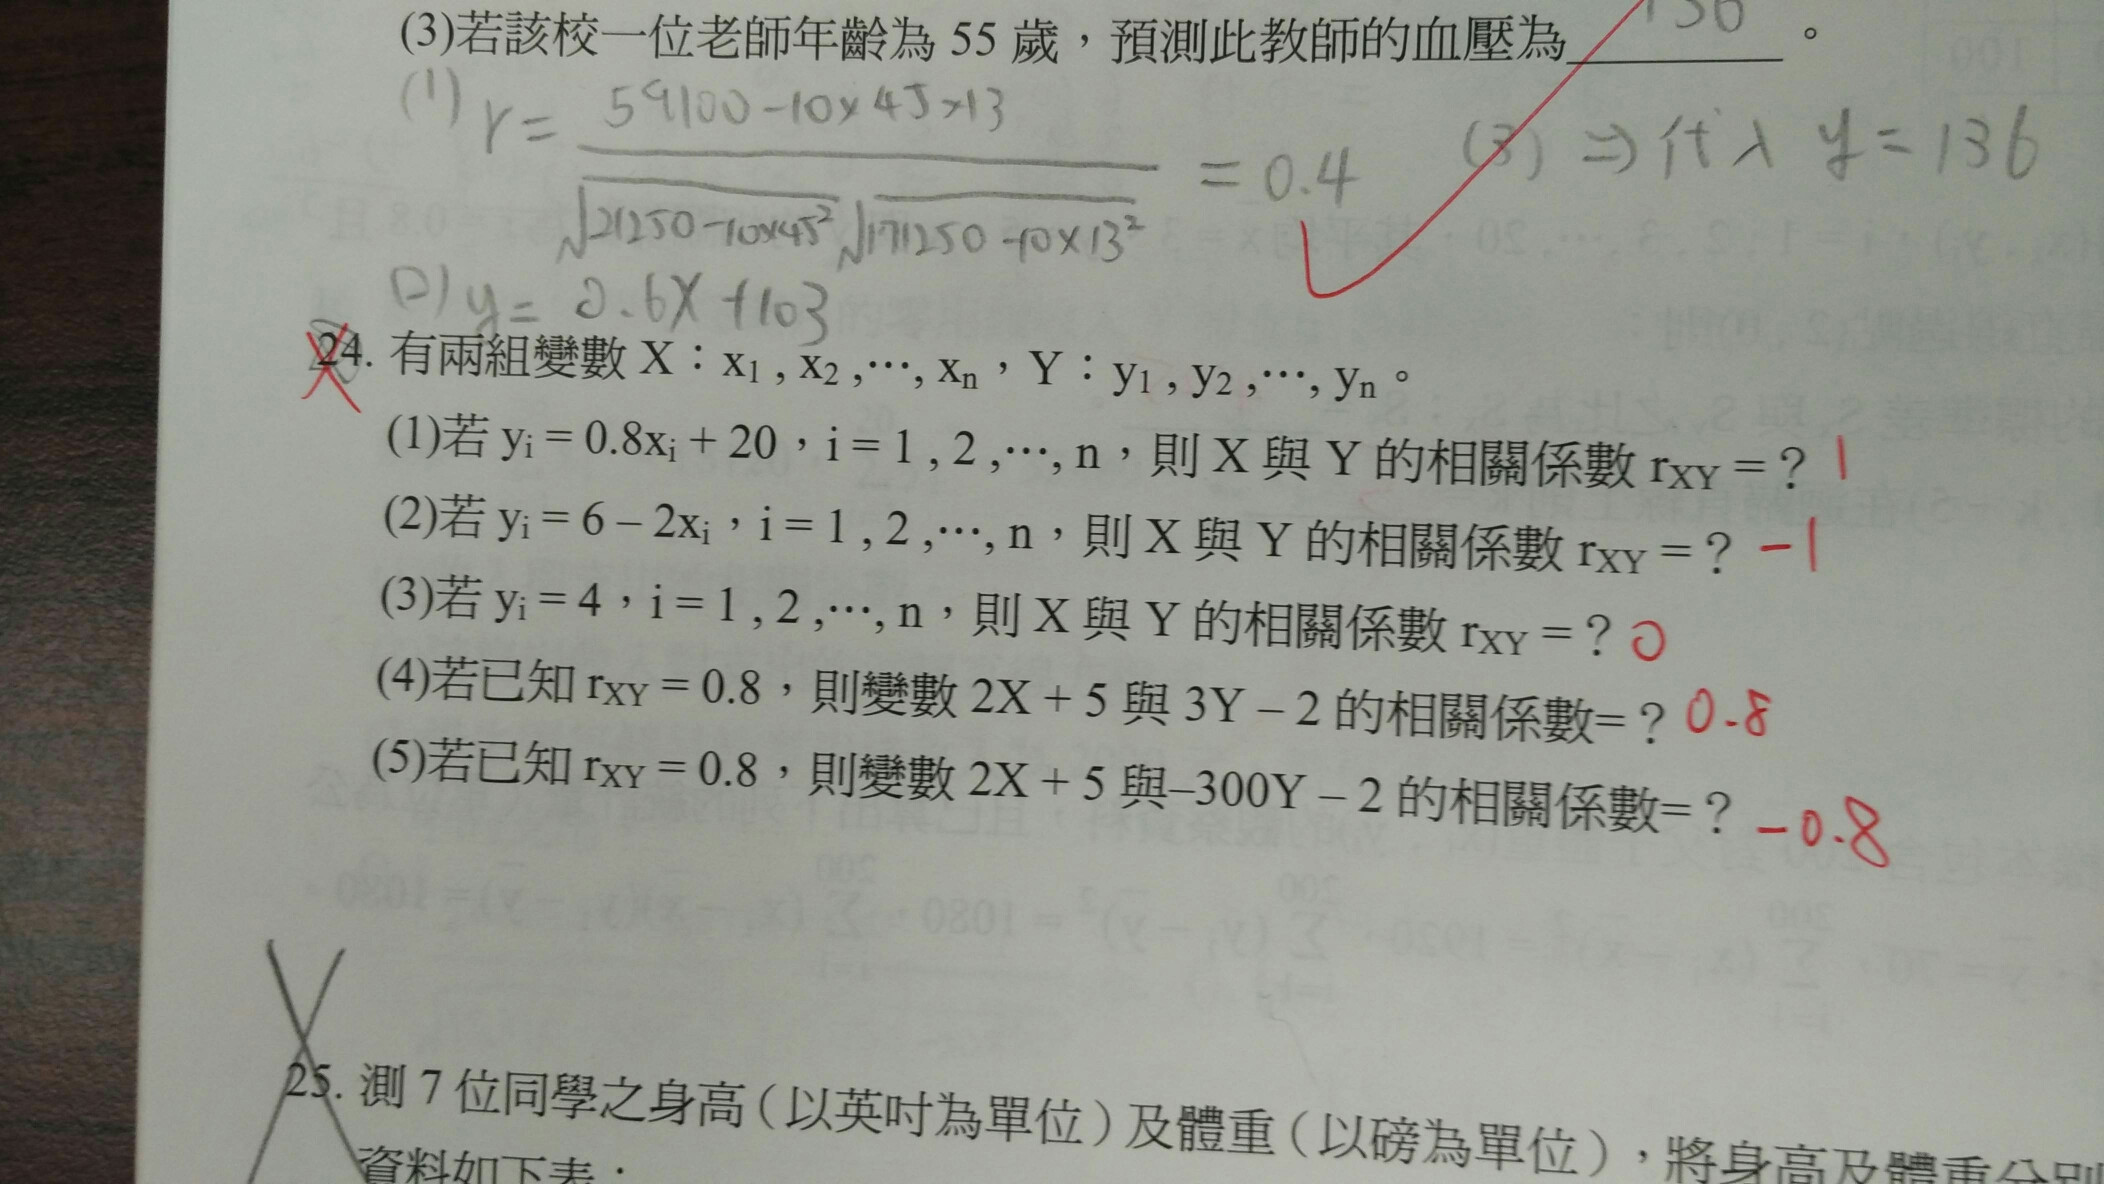 (3)若該校一位老師年齡為 55 歲，預測此教師的血壓為 136 。
(1) r = 59100-10×45×13 / √21250-10×45² √171250-10×13² = 0.4
(3) ⇒ 代入 y = 136
y = 0.6X+103
24. 有兩組變數 X：x₁ , x₂ ,…, xₙ，Y：y₁ , y₂ ,…, yₙ。
(1)若 yᵢ = 0.8xᵢ + 20，i = 1 , 2 ,…, n，則 X 與 Y 的相關係數 rXY = ? 1
(2)若 yᵢ = 6 – 2xᵢ，i = 1 , 2 ,…, n，則 X 與 Y 的相關係數 rXY = ? -1
(3)若 yᵢ = 4，i = 1 , 2 ,…, n，則 X 與 Y 的相關係數 rXY = ? 0
(4)若已知 rXY = 0.8，則變數 2X + 5 與 3Y – 2 的相關係數= ? 0.8
(5)若已知 rXY = 0.8，則變數 2X + 5 與–300Y – 2 的相關係數= ? -0.8
25. 測 7 位同學之身高（以英吋為單位）及體重（以磅為單位），將身高及體重分別
資料如下表：